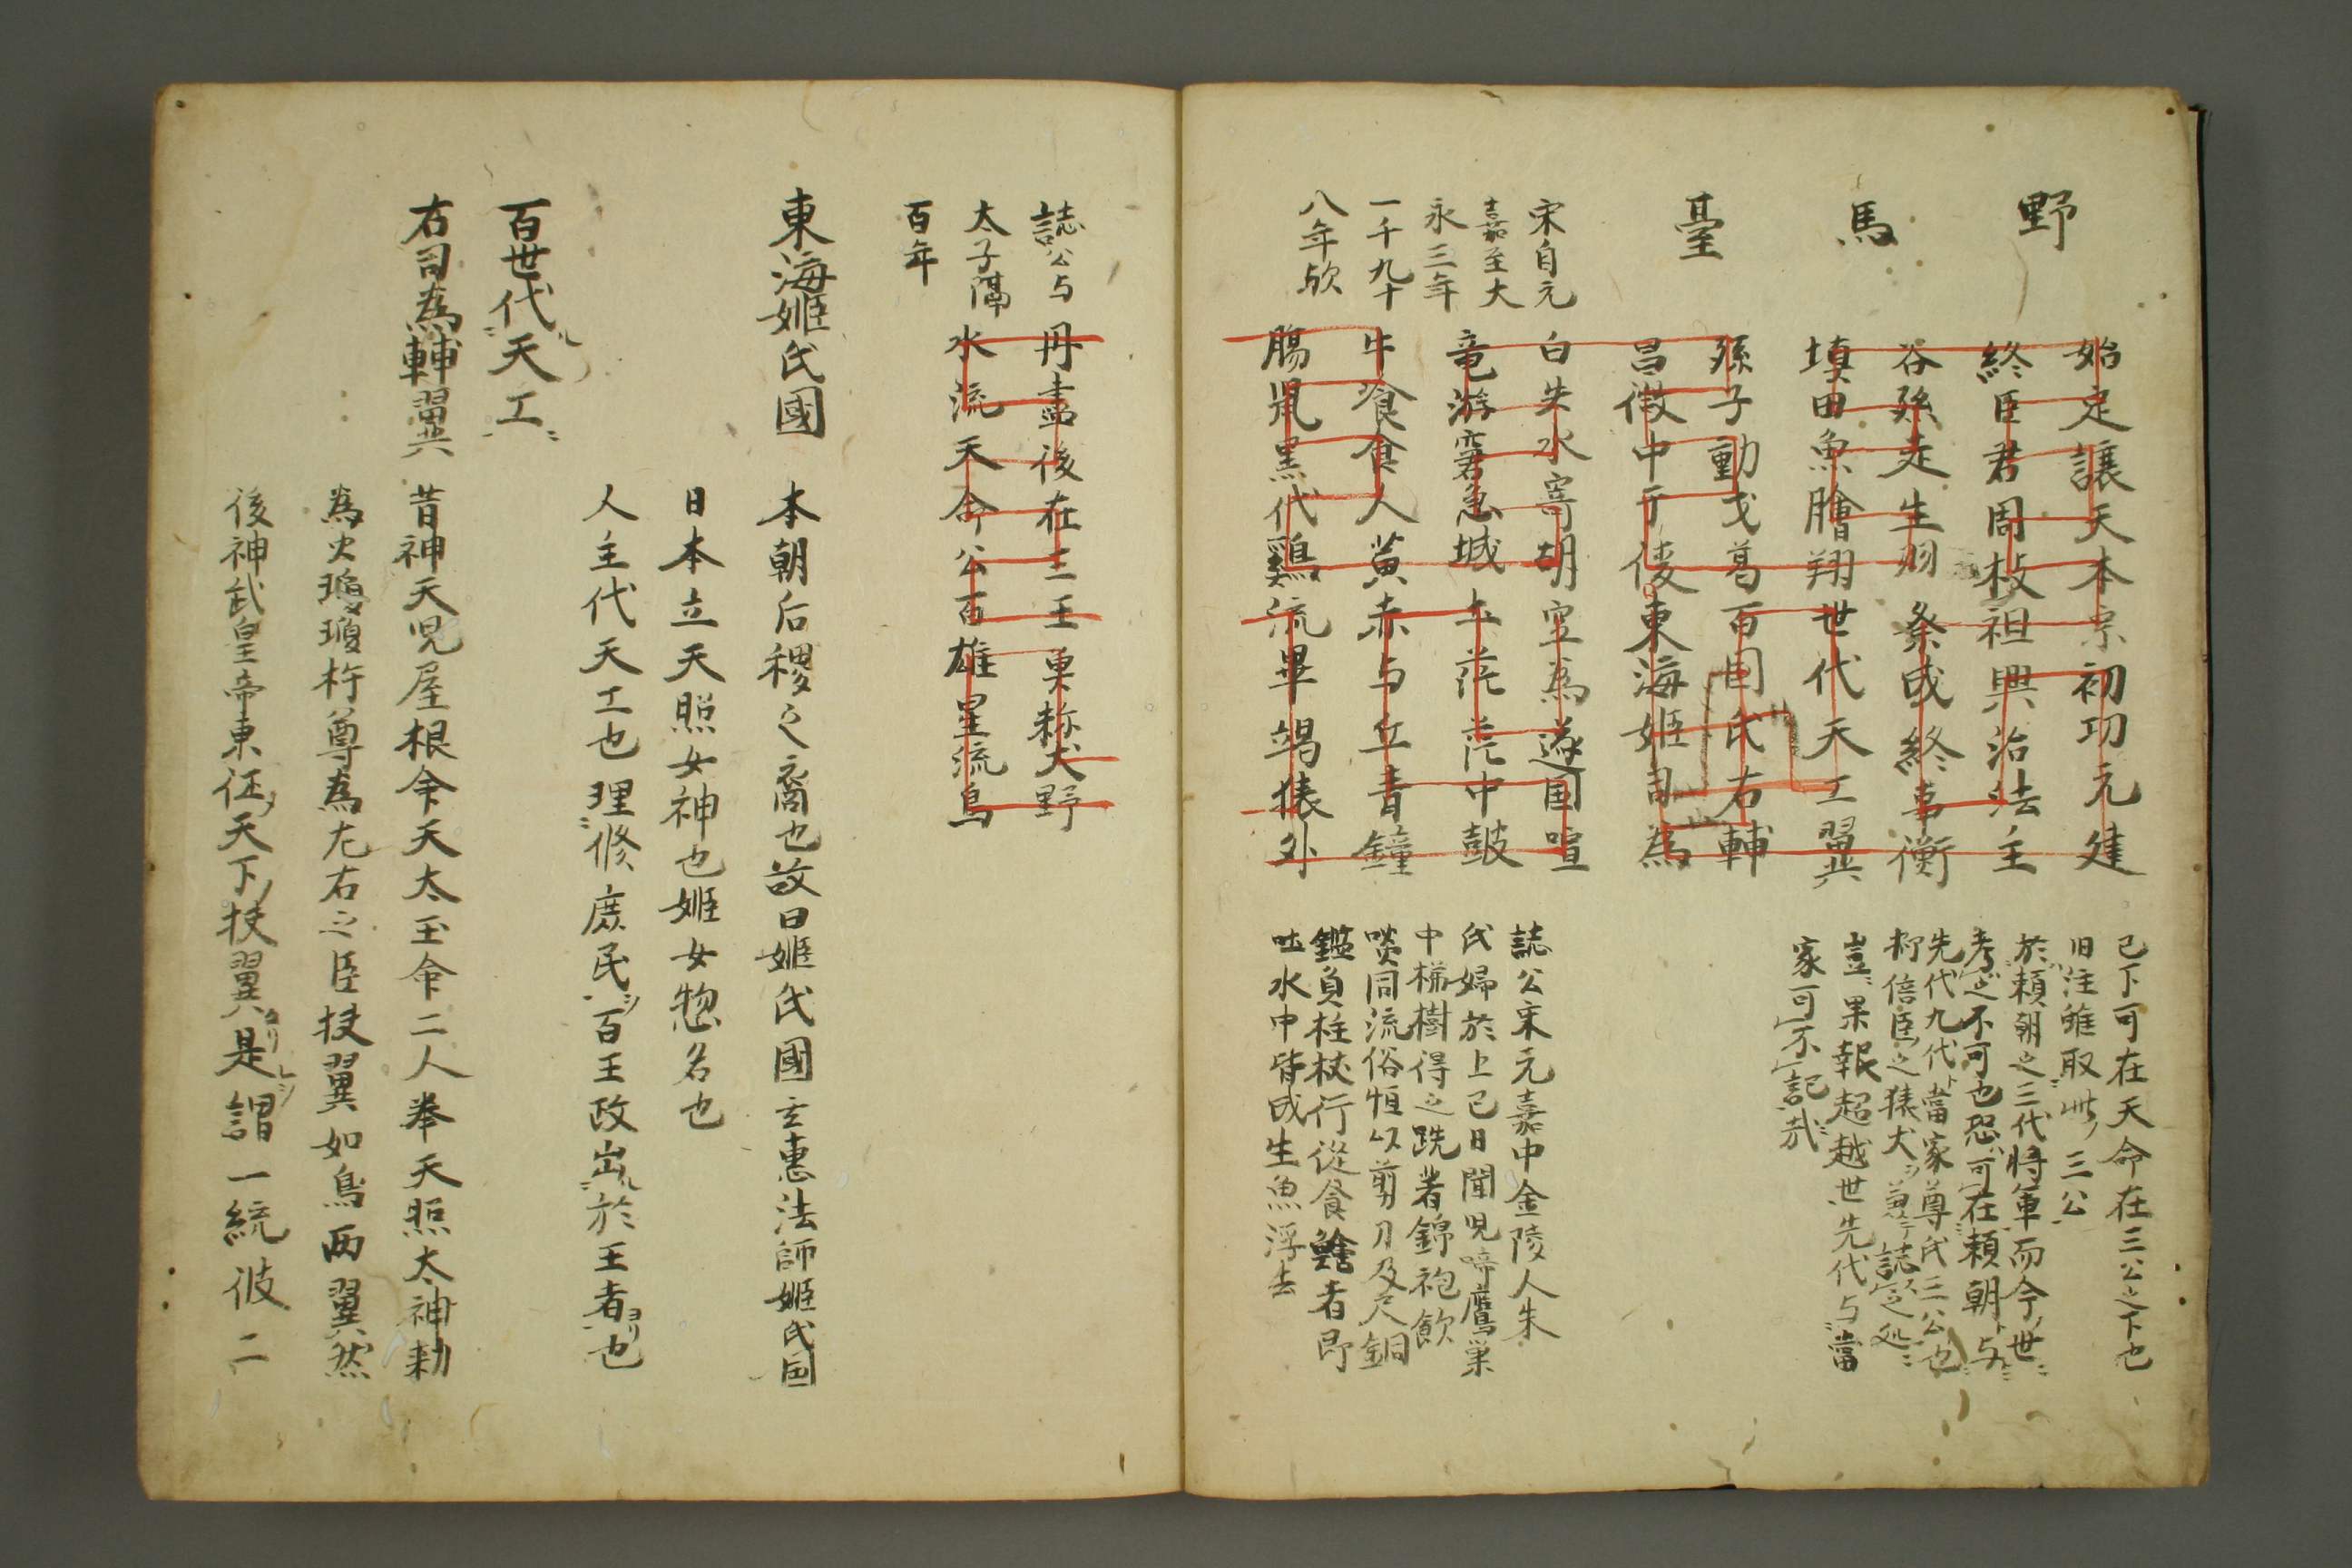 野
馬
臺
始定讓天本宗初功元建
終臣君周枝祖興治法主
谷孫走生羽祭成終事衡
填田魚膾翔世代天工翼
孫子動戈葛百国氏右輔
昌微中干後東海姫司為
白失水寄胡空為遂国喧
竜游窘急城土茫茫中鼓
牛飡食人黄赤与丘青鐘
腸鼠黒代鶏流畢竭猿外
已下可在天命在三公之下也
旧注雖取此三公
於頼朝之三代将軍而今世
考之不可也恐可在頼朝与
先代九代當家尊氏三公也
豈果報超越世先代与當
家可不記哉
宋自元
嘉至大
永三年
一千九十
八年欤
誌公宋元嘉中金陵人朱
氏婦於上巳日聞児啼鷹巣
中梯樹得之跣着錦袍飲
啖同流俗恒以剪刀及尺銅
鑑負柱杖行従食鱠者即
吐水中皆成生魚浮去
誌公与
太子隔
百年
丹盡後在三王東称犬野
水流天命公百雄星流鳥
東海姫氏國
本朝后稷之裔也故曰姫氏國玄恵法師姫氏国
日本立天照女神也姫女惣名也
人主代天工也理修庶民百王政出於王者ヨリ也
百世代天工
右司為輔翼
昔神天児屋根命天太玉命二人奉天照太神勅
為火瓊瓊杵尊為左右之臣扶翼如鳥両翼然
後神武皇帝東征天下扶翼是謂一統彼二